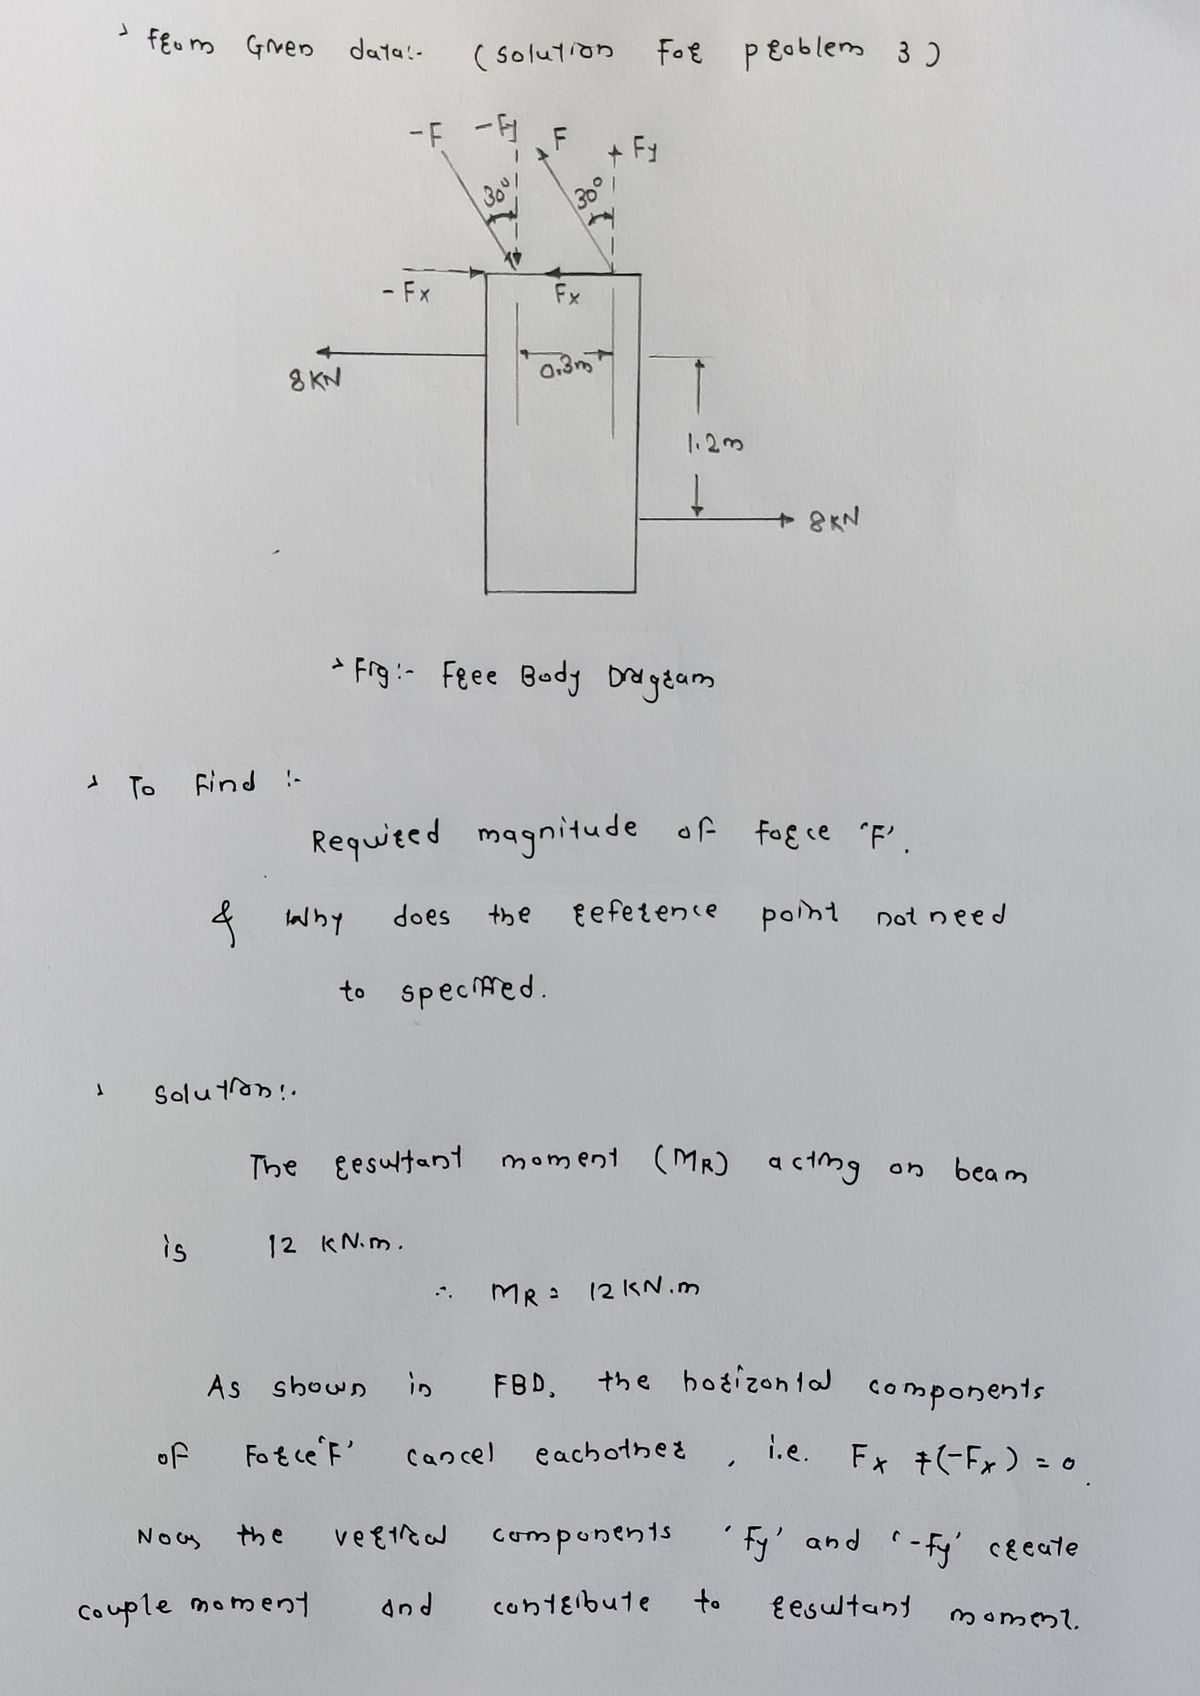 From Given data:- (solution For problem 3)
-F -Fy F + Fy
30° 30°
- Fx Fx
8 KN 0.3m
1.2m
8 KN
Fig:- Free Body Diagram
To Find :-
Required magnitude of force 'F'.
& Why does the reference point not need
to specified.
Solution:-
The resultant moment (MR) acting on beam
is 12 KN.m.
∴ MR = 12 KN.m
As shown in FBD, the horizontal components
of Force 'F' cancel eachother, i.e. Fx +(-Fx) = 0.
Now the vertical components 'Fy' and '-Fy' create
couple moment and contribute to resultant moment.